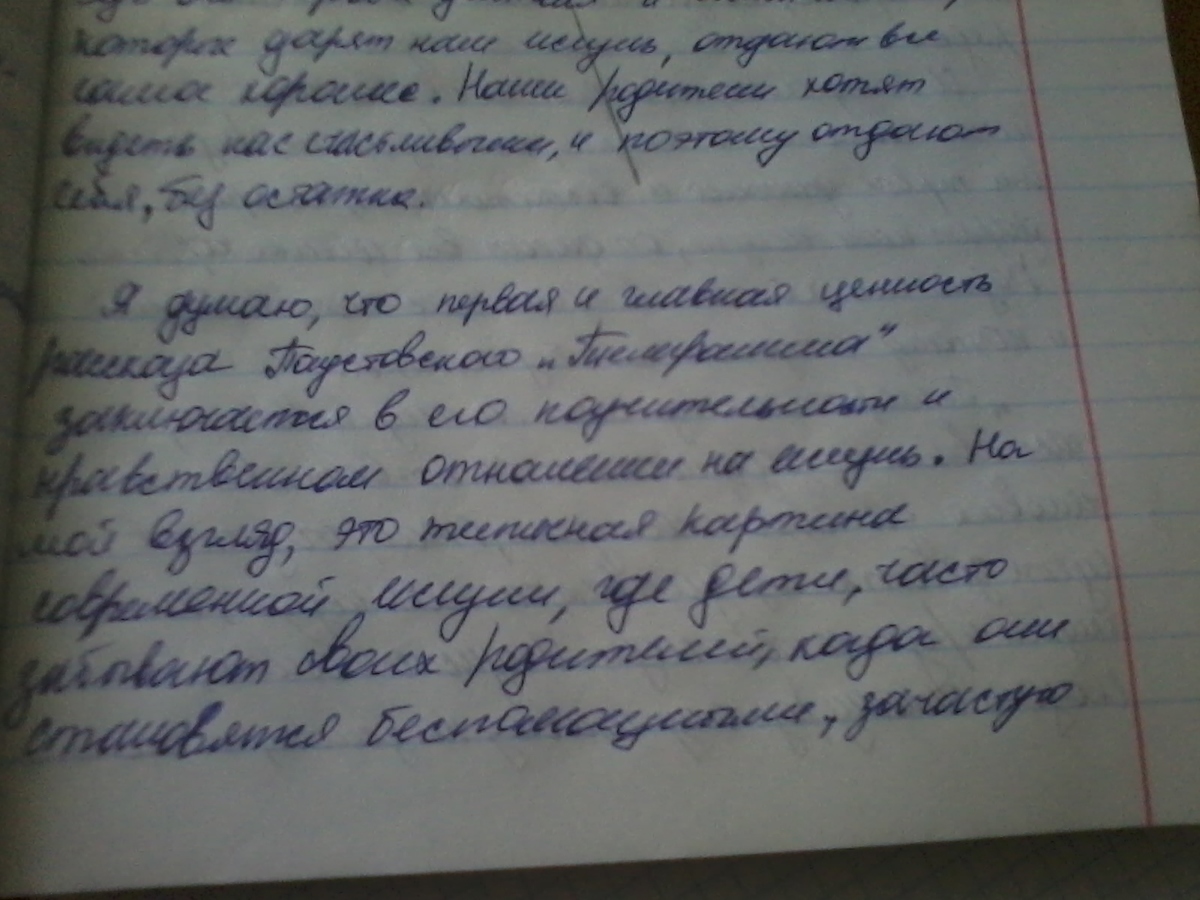 которые дарят нам жизнь, отдают все
самое хорошее. Наши родители хотят
видеть нас счасьливыми, и поэтому отдают
себя, без остатка.
Я думаю, что первая и главная ценность
рассказа Паустовского „Телеграмма"
заключается в его поучительности и
нравственном отношении на жизнь. На
мой взгляд, это типичная картина
современной жизни, где дети, часто
забывают своих родителей, когда они
становятся беспомощными, зачастую